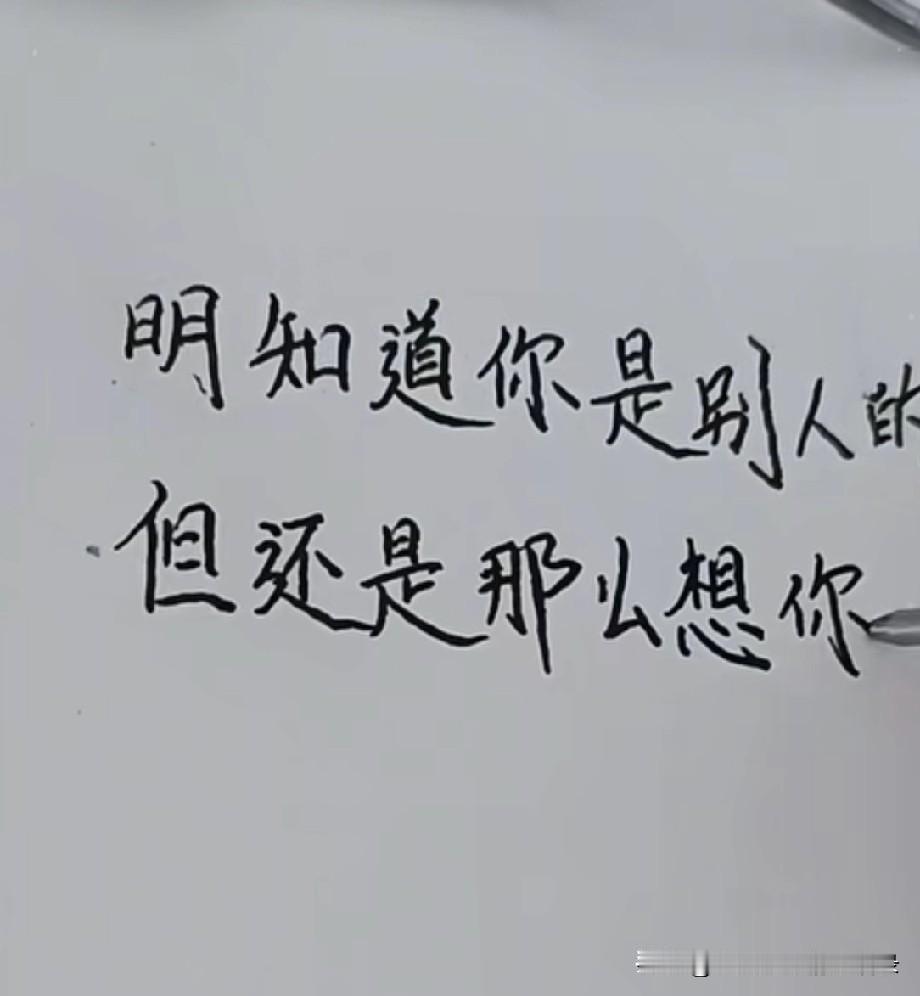 明知道你是别人的
但还是那么想你